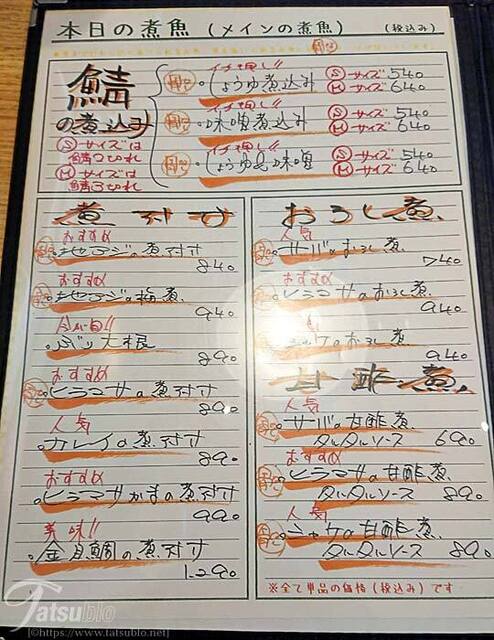 本日の煮魚 (メインの煮魚) (税込み)
鯖
の煮込み
Ⓢサイズは
鯖2切れ
Ⓜサイズは
鯖3切れ
イチ押し!!
しょうゆ煮込み Ⓢサイズ 540
Ⓜサイズ 640
イチ押し!!
味噌煮込み Ⓢサイズ 540
Ⓜサイズ 640
イチ押し!!
しょうゆ&味噌 Ⓢサイズ 540
Ⓜサイズ 640
煮付け
おすすめ
地アジの煮付け
840
おすすめ
地アジの梅煮
940
今が旬!!
ぶり大根
890
おすすめ
ヒラマサの煮付け
890
人気
カレイの煮付け
890
おすすめ
ヒラマサかまの煮付け
990
美味!!
金目鯛の煮付け
1290
おろし煮
人気
サバのおろし煮
740
おすすめ
ヒラマサのおろし煮
940
シャケのおろし煮
940
甘酢煮
人気
サバの甘酢煮
タルタルソース 690
おすすめ
ヒラマサの甘酢煮
タルタルソース 890
人気
シャケの甘酢煮
タルタルソース 890
※全て単品の価格(税込み)です
Tatsublo
©https://www.tatsublo.net